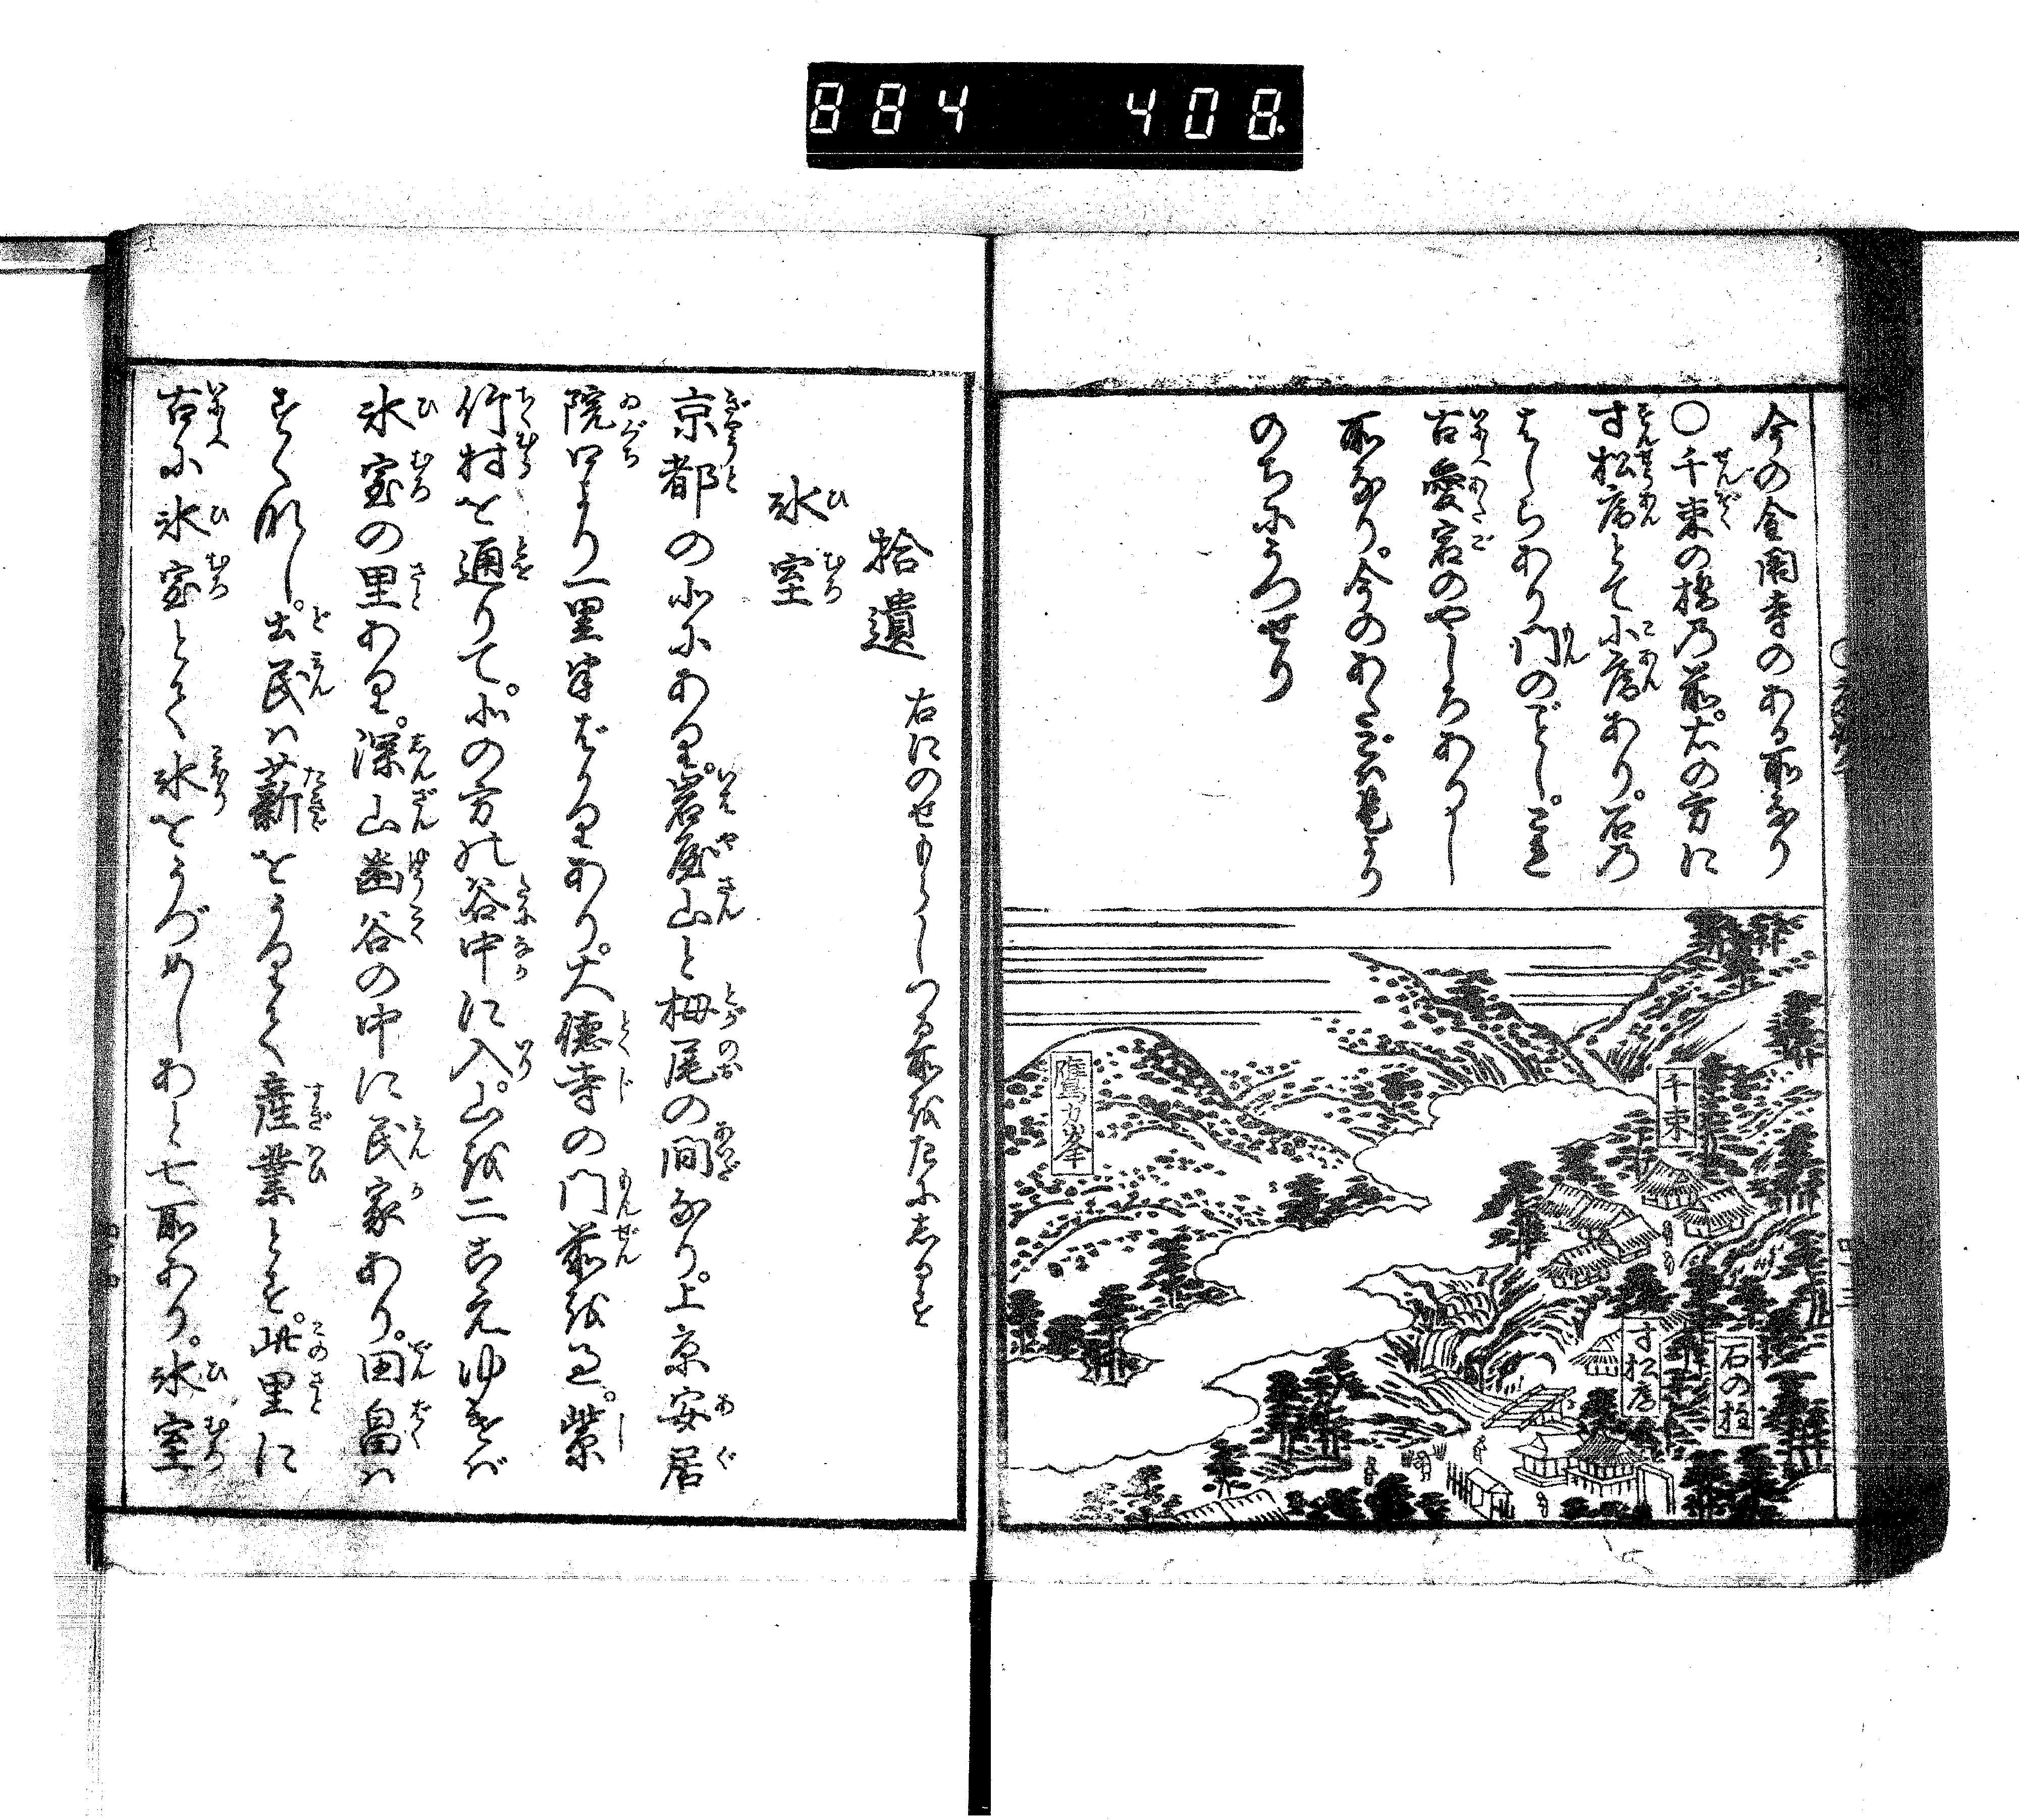 884 408
今の金閣寺のある所なり
○千束の橋乃前右の方に
寸松庵とて小庵あり。石乃
はしらあり門のごとし。こゝは
古愛宕のやしろありし
所なり。今のあたご山は
のちにうつせり
鷹か峯
千束
寸松庵
石の柱
拾遺
右にのせもらしつる所を左にしるす
氷室
京都の北にあり。岩屋山と栂尾の間なり。上京安居
院口より一里半ばかりあり。大徳寺の門前を過。紫
竹村を通りて。北の方の谷中に入。山を二こえゆけば
氷室の里あり。深山幽谷の中に民家あり。田畠は
すくなし。土民は薪をうりて産業とす。此里に
古に氷室とて氷をうづめしあと七所あり。氷室